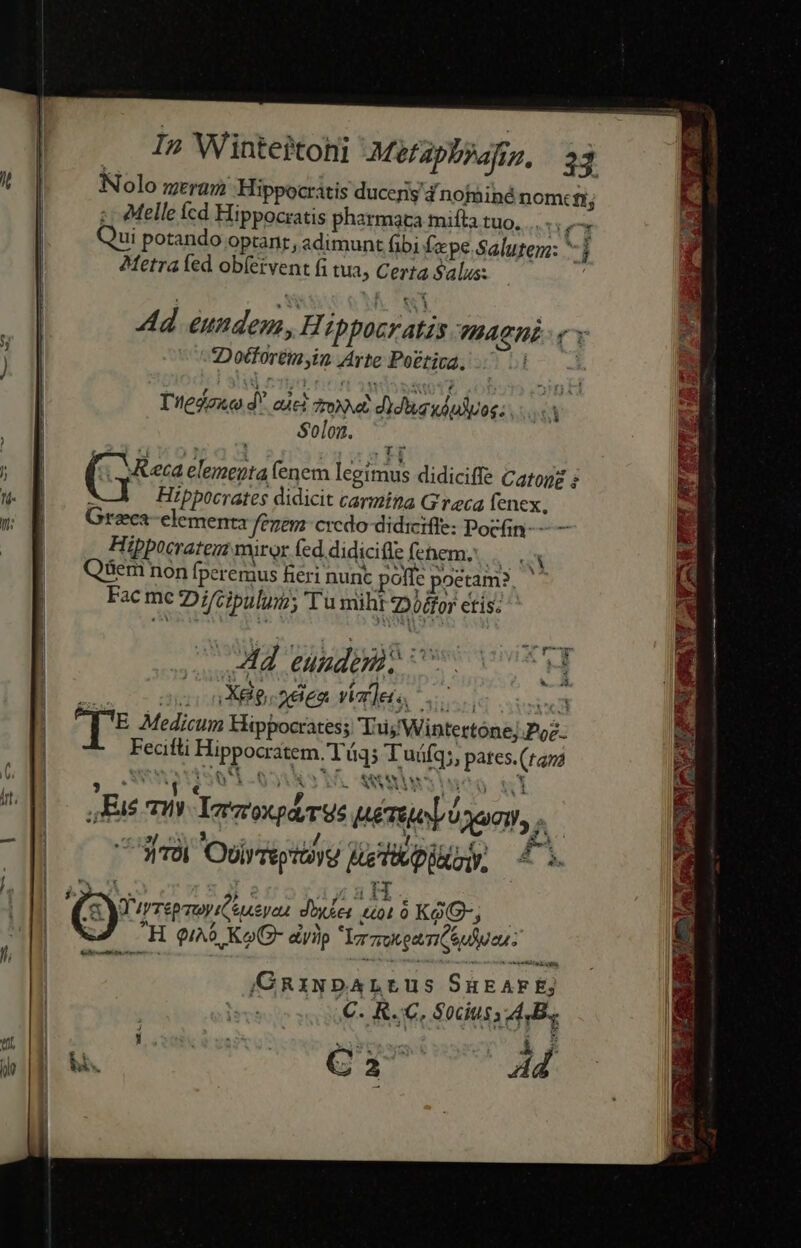 In Wintertoni Metaphrasin. 33
Nolo meram Hippocratis ducens nominé nomen;
Melle sed Hippocratis pharmaca mista tuo.
Qui potando optant, adimunt sibi sæpe Salutem:
Metra sed observent si tua, Certa Salus.
Ad eundem, Hippocratis magni
Doctorem, in Arte Poëtica.
Γηράσκω δ' αἰεὶ πολλὰ διδασκόμενος.
Solon.
GRæca elementa senem legimus didicisse Catonē;
Hippocrates didicit carmina Græca senex.
Græca elementa senem credo didicisse: Poësin---
Hippocratem miror sed didicisse senem.
Quem non speremus fieri nunc posse poëtam?
Fac me Discipulum; Tu mihi Doctor eris.
Ad eundem.
Χεὶρ χεῖρα νίπτει.
TE Medicum Hippocrates; Tu, Wintertone, Poë-
Fecisti Hippocratem. Túq; Tuúsq;, pares. (tam
Εἰς τὴν Ἱπποκράτους μετεμψύχωσιν,
ἤτοι Οὐιντερτώνου μετάφρασιν.
ΟΥιντερτωνιζέμεναι δοκέει μοι ὁ Κῷος,
Ἢ φιλὸ Κῷος ἀνὴρ Ἱπποκρατιζέμεναι.
GRINDALLUS SHEAFE,
C. R. C. Socius, A.B.
C 2 Ad